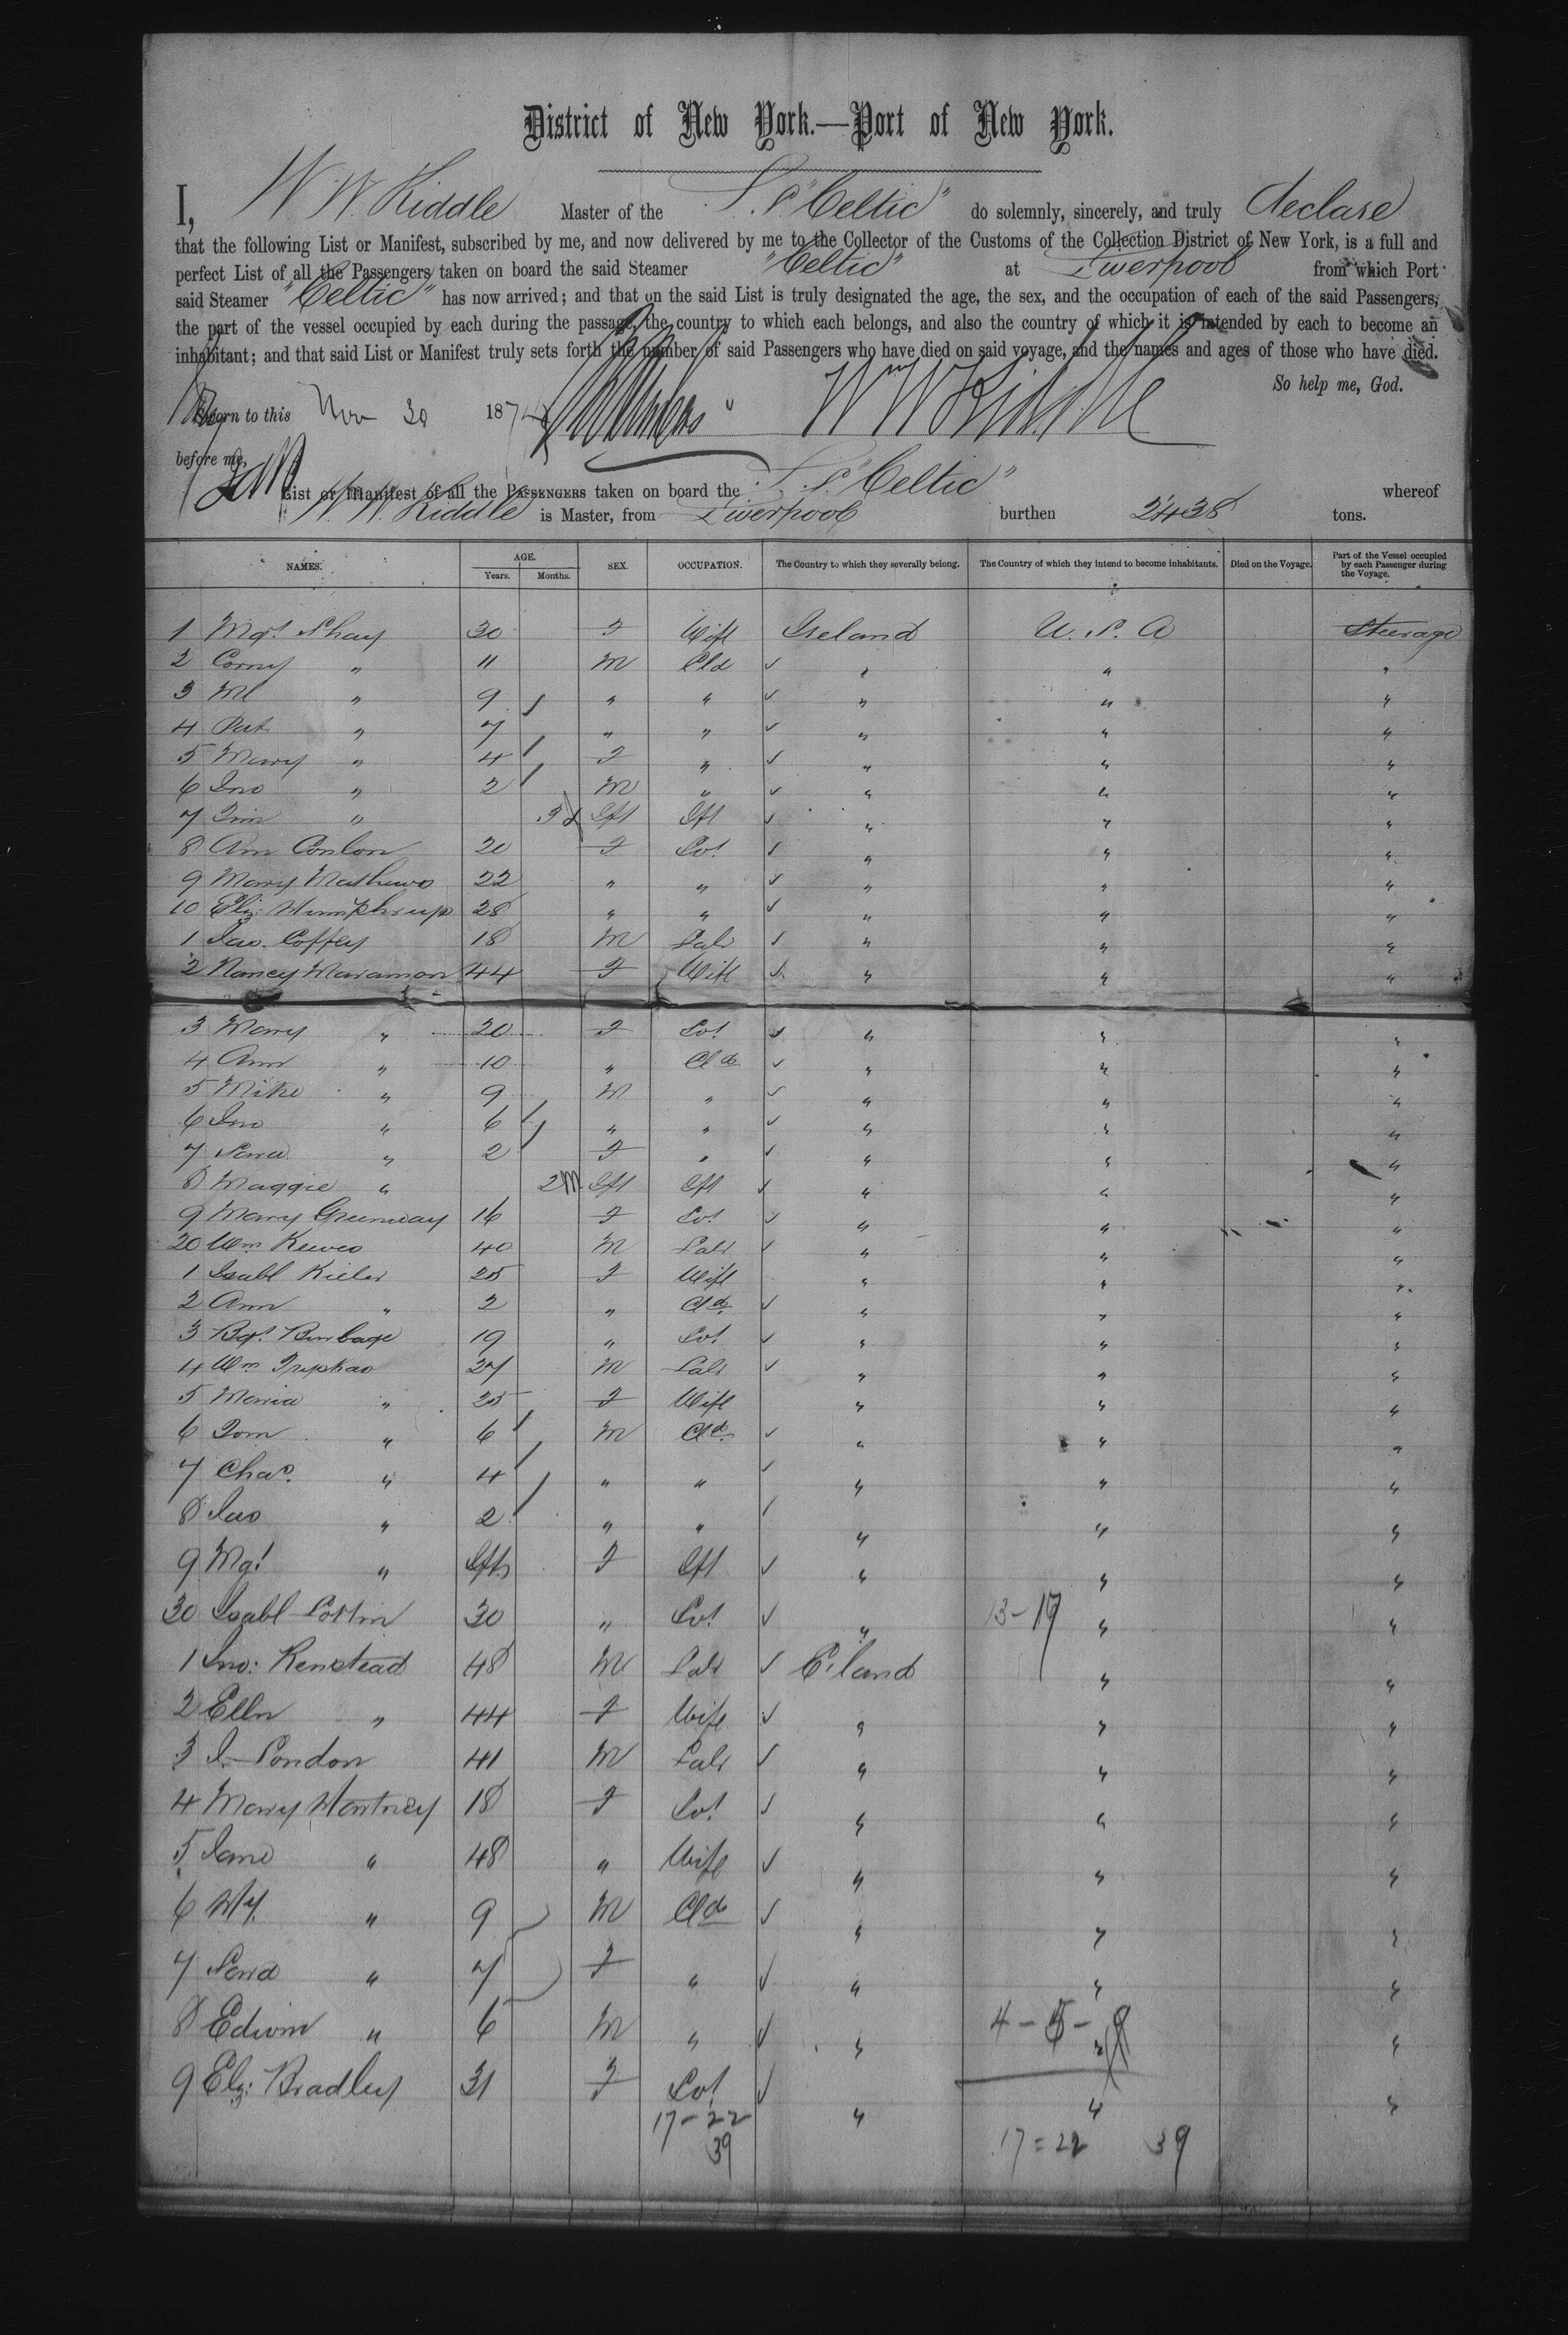 District of New York.—Port of New York.
I, W. W. Kiddle Master of the S.S. "Celtic" do solemnly, sincerely, and truly declare
that the following List or Manifest, subscribed by me, and now delivered by me to the Collector of the Customs of the Collection District of New York, is a full and
perfect List of all the Passengers taken on board the said Steamer "Celtic" at Liverpool from which Port
said Steamer "Celtic" has now arrived; and that on the said List is truly designated the age, the sex, and the occupation of each of the said Passengers,
the part of the vessel occupied by each during the passage, the country to which each belongs, and also the country of which it is intended by each to become an
inhabitant; and that said List or Manifest truly sets forth the number of said Passengers who have died on said voyage, and the names and ages of those who have died.
So help me, God.
Sworn to this Nov 30 1874 Wm W Kiddle
before me,
List or Manifest of all the PASSENGERS taken on board the S.S. "Celtic" whereof
W. W. Kiddle is Master, from Liverpool burthen 2438 tons.
NAMES. AGE. Years. Months. SEX. OCCUPATION. The Country to which they severally belong. The Country of which they intend to become inhabitants. Died on the Voyage. Part of the Vessel occupied by each Passenger during the Voyage.
1 Mgt Shay 30 F Wife Ireland U.S.A Steerage
2 Corny " 11 M Cld " " "
3 Ml " 9 " " " " "
4 Pat " 7 " " " " "
5 Mary " 4 F " " " "
6 Jno " 2 M " " " "
7 Tim " 3 Ift Ift " " "
8 Ann Conlon 20 F Svt " " "
9 Mary Mathews 22 " " " " "
10 Eliz: Humphreys 28 " " " " "
1 Jas. Coffey 18 M Labr " " "
2 Nancy 44 F Wife " " "
3 Mary " 20 F Svt " " "
4 Ann " 10 " Cld " " "
5 Mike " 9 M " " " "
6 Jno " 6 " " " " "
7 Sara " 2 F " " " "
8 Maggie " 2M Ift Ift " " "
9 Mary Greenway 16 F Svt " " "
20 Wm 40 M Labr " " "
1 Isabl 25 F Wife " " "
2 Ann " 2 " Cld " " "
3 Bgt Burbage 19 " Svt " " "
4 Wm 27 M Labr " " "
5 Maria " 25 F Wife " " "
6 Tom " 6 M Cld " " "
7 Chas. " 4 " " " " "
8 Jas " 2 " " " " "
9 Mgt " Ift F Ift " " "
30 Isabl 30 " Svt " 13-17 " "
1 Jno: Kenstead 48 M Labr E.land " "
2 Elln " 44 F Wife " " "
3 J. London 41 M Labr " " "
4 Mary Hartney 18 F Svt " " "
5 Jane " 48 " Wife " " "
6 Hy. " 9 M Cld " " "
7 Sara " 7 F " " " "
8 Edwin " 6 M " " 4-5-9 " "
9 Elz: Bradley 31 F Svt " " "
17-22
39
17=22 39